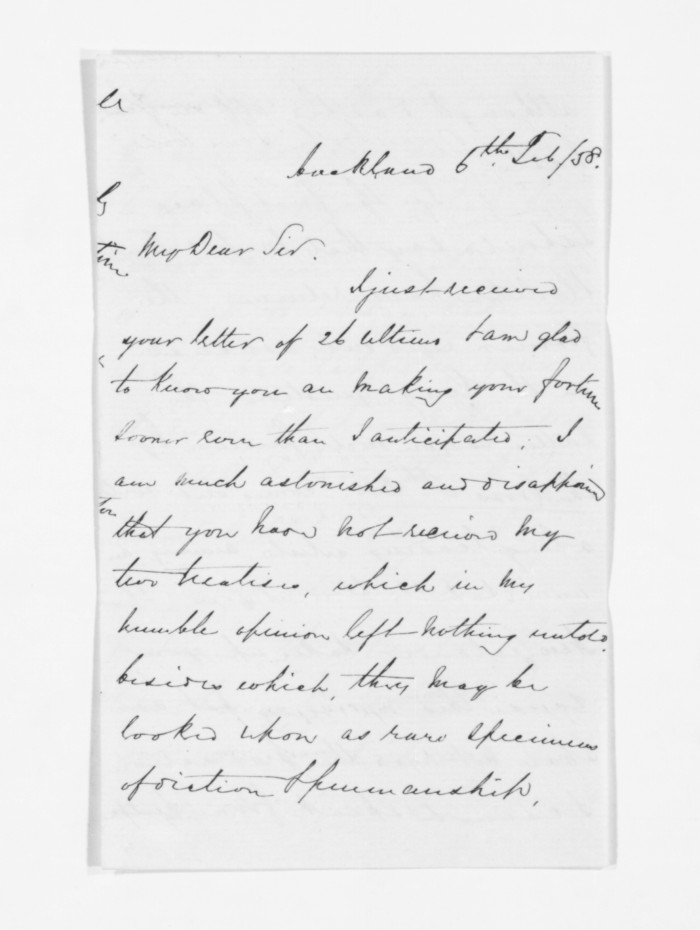 Auckland 6th Feb/58.
My Dear Sir.
I just received
your letter of 26 ultimo & am glad
to know you are making your fortune
sooner even than I anticipated. I
am much astonished and disappoin
that you have not received my
two treatises, which in my
humble opinion left nothing untold.
besides which, they may be
looked upon as rare specimens
of diction & penmanship,